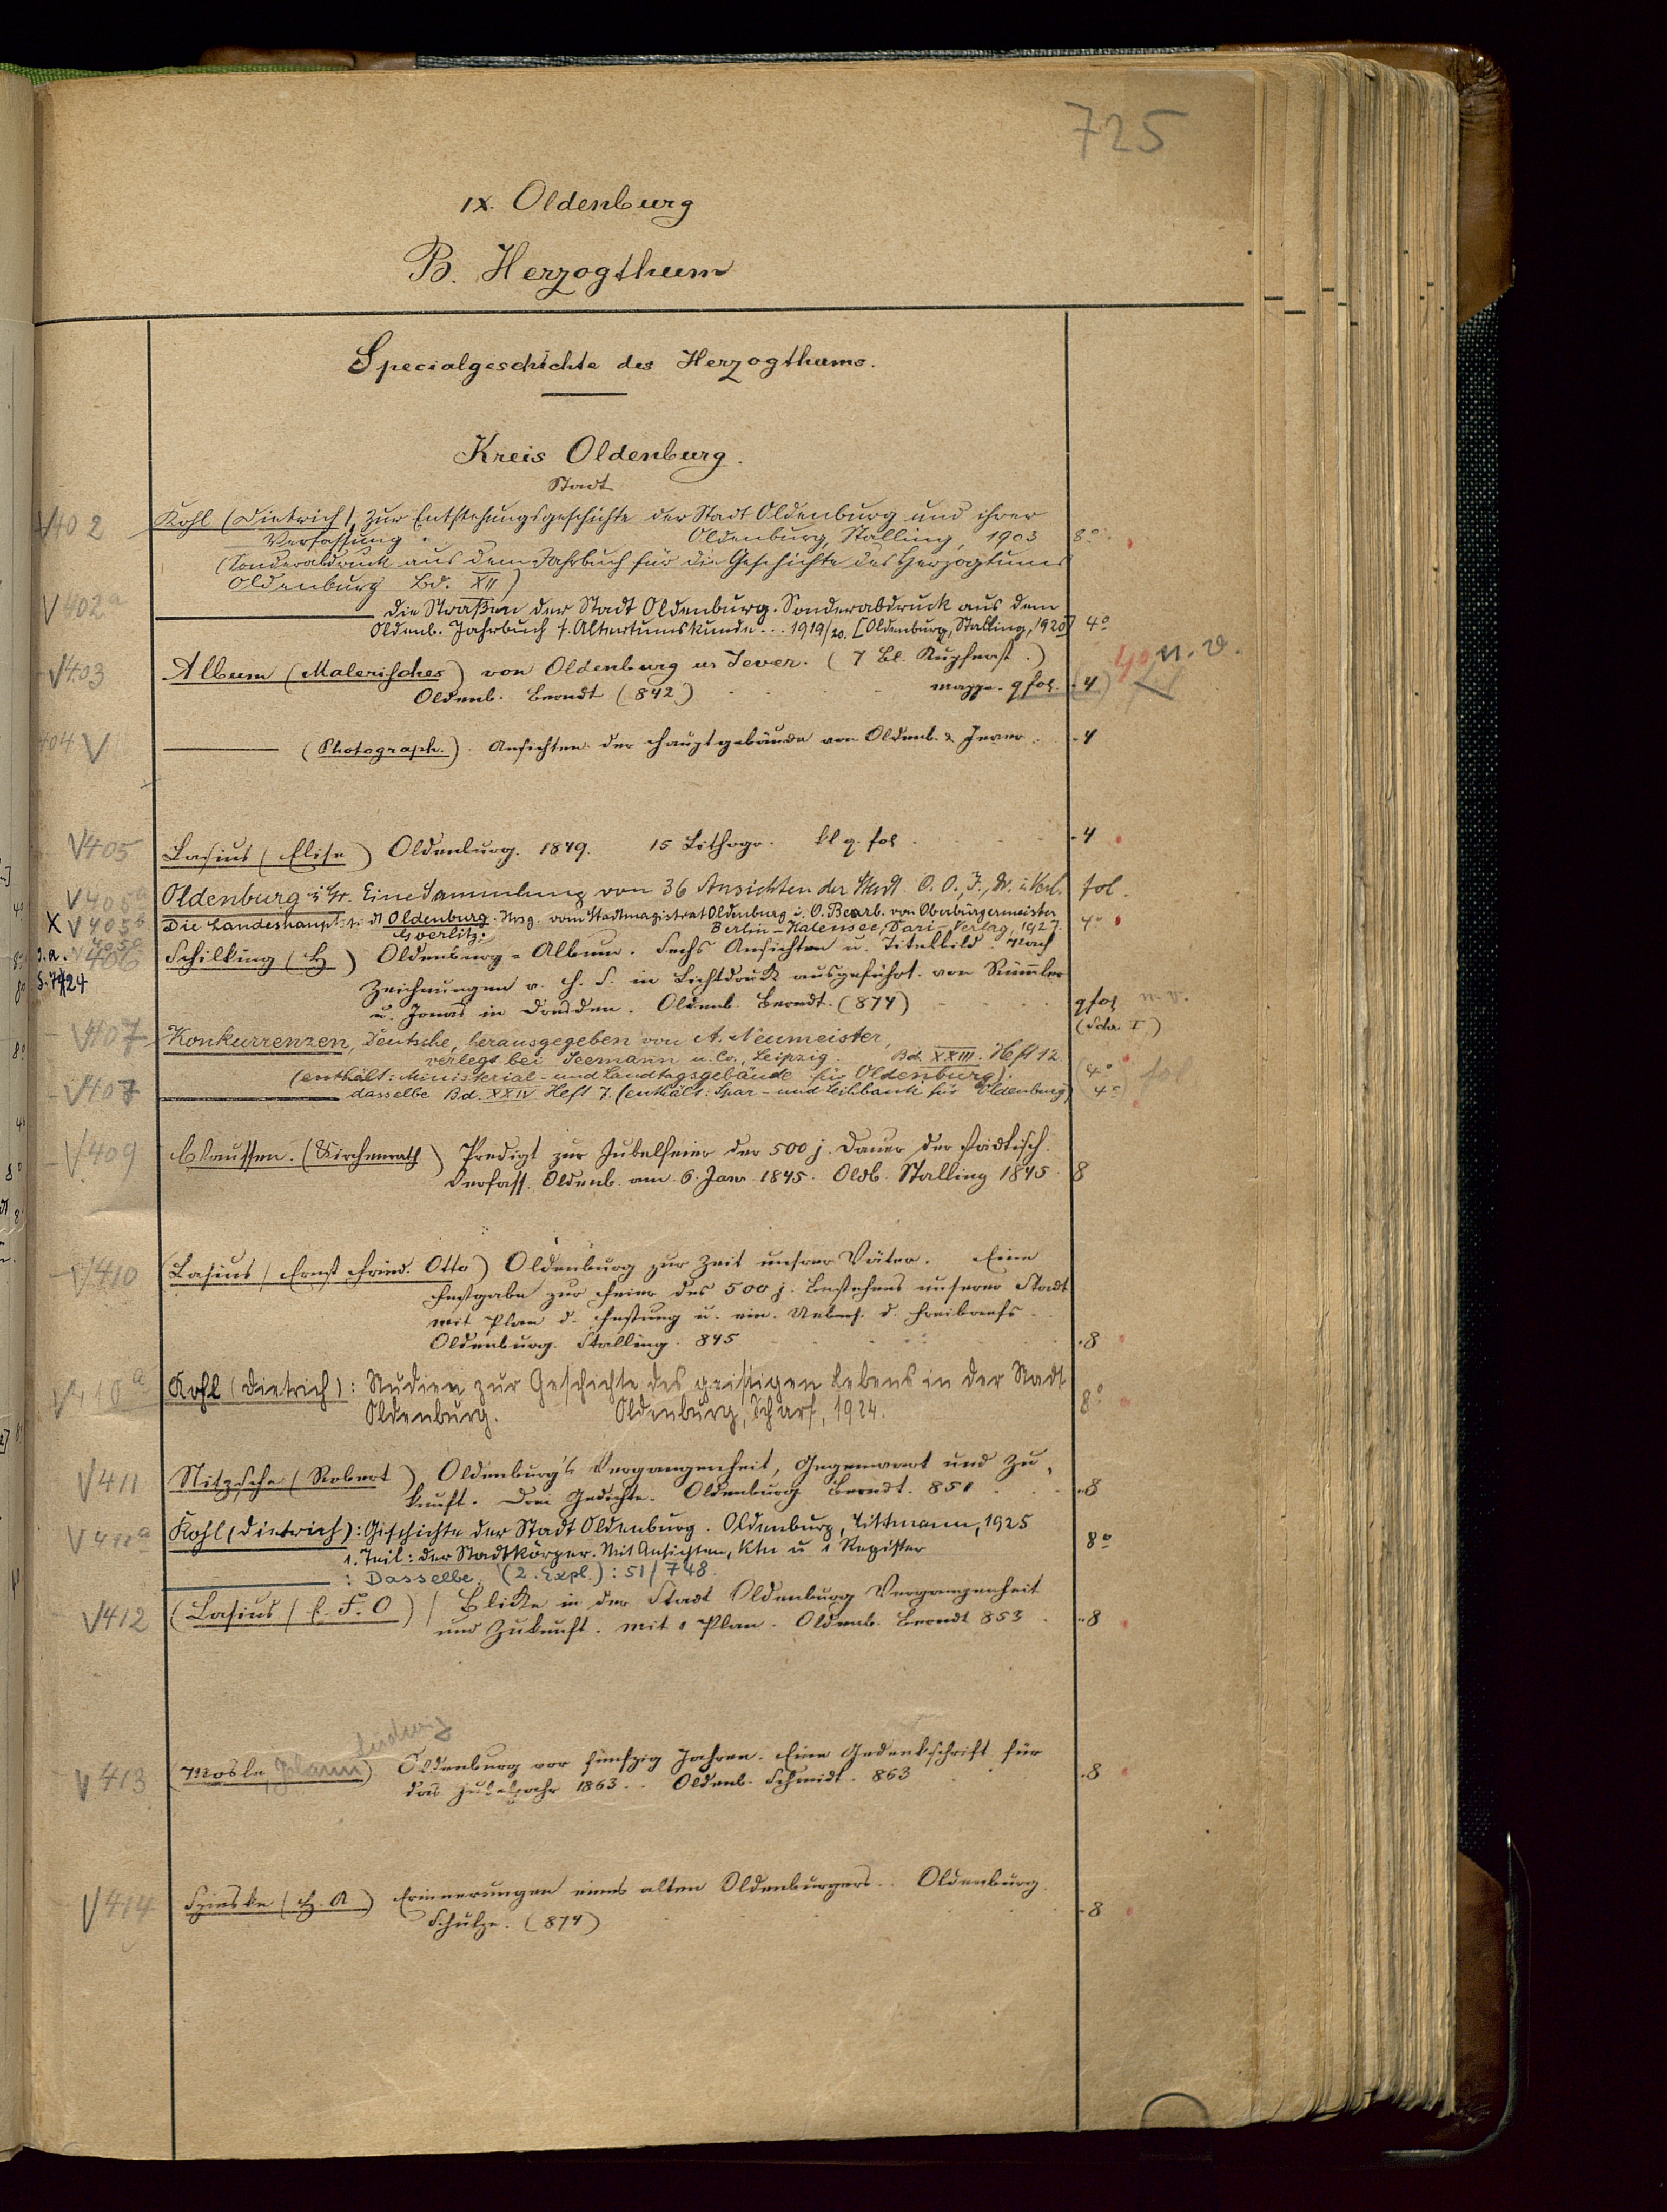 725
IX. Oldenburg
B. Herzogthum
Specialgeschichte des Herzogthums.
Kreis Oldenburg.
Stadt
V402 Kohl (Dietrich), Zur Entstehungsgeschichte der Stadt Oldenburg und ihrer
Verfassung. Oldenburg, Stalling, 1903 8°
(Sonderabdruck aus dem Jahrbuch für die Geschichte des Herzogtums
Oldenburg Bd. XII)
V402a Die Straßen der Stadt Oldenburg. Sonderabdruck aus dem
Oldenb. Jahrbuch f. Altertumskunde... 1919/20. [Oldenburg, Stalling, 1920] 4°
V403 Album (Malerisches) von Oldenburg u. Jever. (7 Bl. Kupferst.) n. v.
Oldenb. Berndt (842) Mappe. q fol. 4
404 V (Photograph.). Ansichten der Hauptgebäude von Oldenb. & Jever. 4
V405 Lasius (Elise) Oldenburg. 1849. 15 Lithogr. kl q. fol. 4
V405a Oldenburg i Gr. Eine Sammlung von 36 Ansichten der Stadt. O. O., J., Dr. u. Verl. fol.
X V405b Die Landeshauptstadt Oldenburg. Hrsg. vom Stadtmagistrat Oldenburg i. O. Bearb. von Oberbürgermeister 4°
Goerlitz. Berlin-Halensee, Dari-Verlag, 1927.
s. a. 406 Schilking (H) Oldenburg-Album. Sechs Ansichten u. Titelbild. Nach
S. 724 Zeichnungen v. H. S. in Lichtdruck ausgeführt von Rümmler
u. Jonas in Dresden. Oldenb. Berndt. (874) q fol n. v.
(Schr. I)
V407 Konkurrenzen, Deutsche, herausgegeben von A. Neumeister,
verlegt bei Seemann u. Co., Leipzig. Bd. XXIII. Heft 12.
(enthält: Ministerial- und Landtagsgebäude für Oldenburg). 4° fol
V407 dasselbe Bd. XXIV Heft 7. (enthält: Spar- und Leihbank für Oldenburg) 4°
V409 Claussen. (Kirchenrath) Predigt zur Jubelfeier der 500 j. Dauer der städtisch.
Verfass. Oldenb. am 6. Jan. 1845. Oldb. Stalling 1845. 8
V410 (Lasius (Ernst Fried. Otto) Oldenburg zur Zeit unsrer Väter. Eine
Festgabe zur Feier des 500 j. Bestehens unserer Stadt
mit Plan d. Festung u. ein. Uebers. d. Freibriefs.
Oldenburg. Stalling. 845 8
V410a Kohl (Dietrich): Studien zur Geschichte des geistigen Lebens in der Stadt
Oldenburg. Oldenburg, Scharf, 1924. 8°
V411 Nitzsche (Robert) Oldenburg's Vergangenheit, Gegenwart und Zu-
kunft. Drei Gedichte. Oldenburg Berndt. 851 8
V411a Kohl (Dietrich): Geschichte der Stadt Oldenburg. Oldenburg, Littmann, 1925
1. Teil: Der Stadtkörper. Mit Ansichten, Ktn u 1 Register 8°
: Dasselbe. (2. Expl.): 51/748.
V412 (Lasius (E. F. O) Blicke in der Stadt Oldenburg Vergangenheit
und Zukunft. Mit 1 Plan. Oldenb. Berndt 853 8
Ludwig
V413 (Mosle, Johann) Oldenburg vor fünfzig Jahren. Eine Gedenkschrift für
das Jubeljahr 1863. Oldenb. Schmidt. 863 8
V414 Spieske (H. A) Erinnerungen eines alten Oldenburgers. Oldenburg.
Schulze. (874) 8